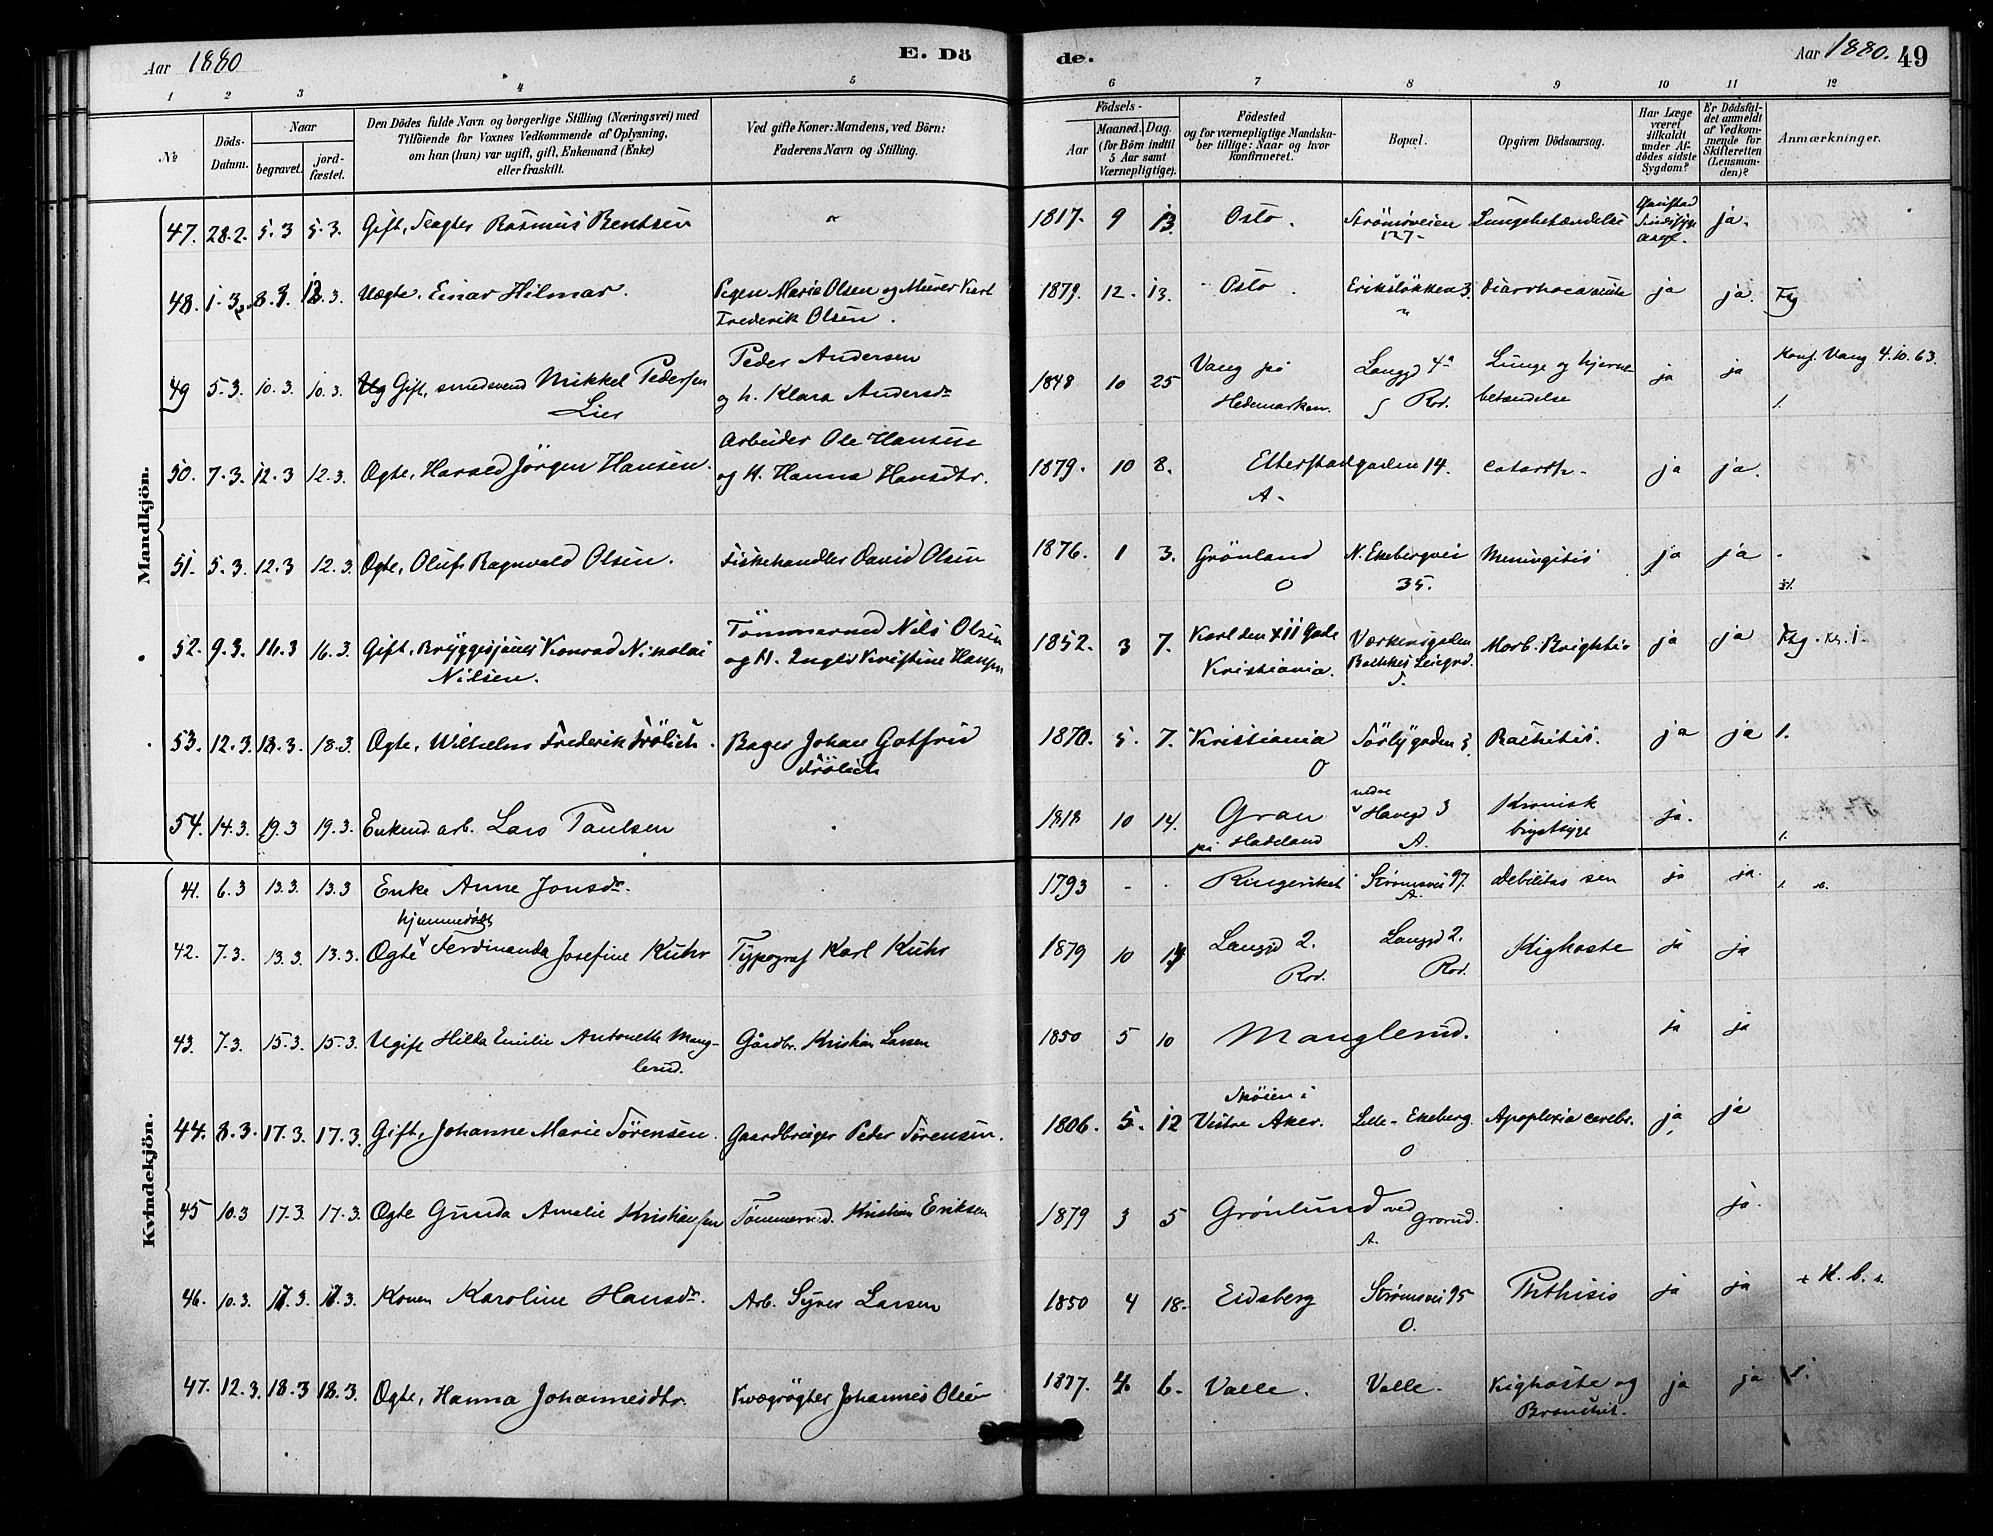 Aar 1880 E. Dö
de. Aar 1880. 49
1 2 3 4 5 6 7 8 9 10 11 12
№
Döds-Datum.
Naar
begravet.
jordfæstet.
Den Dödes fulde Navn og borgerlige Stilling (Næringsvei) med
Tilföiende for Voxnes Vedkommende af Oplysning,
om han (hun) var ugift, gift, Enkemand (Enke)
eller fraskilt.
Ved gifte Koner: Mandens, ved Börn:
Faderens Navn og Stilling.
Födsels-
Aar
Maaned. Dag.
(for Börn indtil
5 Aar samt
Værnepligtige).
Födested
og for værnepligtige Mandskaber tillige: Naar og hvor
konfirmeret.
Bopæl.
Opgiven Dödsaarsag.
Har Læge
været
tilkaldt
under Afdödes sidste
Sygdom?
Er Dödsfaldet anmeldt
af Vedkommende for
Skifteretten
(Lensmanden)?
Anmærkninger.
Mandkjön.
47. 28.2. 5.3 5.3. Gift, Rasmus Bentsen 1817. 9 13. Oslo. Strömsveien 127 Lungebetændelse Gaustad Sindssyge asyl. ja.
48. 1.3. 8.3. 12.3. Uægte. Einar Hilmar. Pigen Marie Olsen og Murer Karl
Frederik Olsen. 1879. 12. 13. Oslo. Eriksløkken 3. Diarrhoea acuta ja ja. Fsg
49 5.3. 10.3. 10.3. Gift, smedsvend Mikkel Pedersen
Lier Peder Andersen
og h. Klara Andersdr 1848 10 25 Vang på
Hedemarken. Langgd 4a
Rod. Lunge og hjerne
betændelse ja ja Konf. Vang 4.10.63.
50. 7.3. 12.3 12.3. Ægte, Harald Jörgen Hansen. Arbeider Ole Hansen
og H. Hanna Hansdtr. 1879. 10 8. Etterstadgaden 14.
A. catarrh. ja ja.
51. 5.3. 12.3 12.3. Ægte, Oluf Ragnvald Olsen. Fiskehandler David Olsen 1876. 1 3. Grönland
O N. Ekebergvei
35. Meningitis ja ja
52. 9.3. 16.3 16.3. Gift, Bryggesjauer Konrad Nikolai
Nilsen. Tömmermd Nils Olsen
og H. Kristine Hansen 1852. 3 7. Karl den XII Gade
Kristiania. Verkensgaden
Morb. Brightii ja ja Fsg.
53. 12.3. 18.3. 18.3. Ægte, Wilhelm Frederik Frölich. Bager Johan Gotfrid
Frölich 1870. 5. 7. Kristiania
O Sörligaden 5 Rachitis. ja ja 1.
54. 14.3. 19.3 19.3. Enkemd. arb. Lars Paulsen 1818 10 14. Gran
på Hadeland nedre
Havegd 3
A. Kronisk
brystsyge ja. 1.
Kvindekjön.
41. 6.3 13.3. 13.3 Enke Anne Jonsdr. 1793 - - Ringeriket Strömsvei 97.
A. Debilitas sen ja ja.
42. 7.3. 13.3. 13.3. Ægte hjemmedöbt Ferdinanda Josefine Kuhr Typograf Karl Kuhr 1879 10 Langgd 2.
Rod. Langgd 2.
Rod. Kighoste ja ja
43. 7.3. 15.3. 15.3. Ugift Hilda Emilie Antonette Manglerud. Gårdbr. Kristian Larsen 1850 5 10 Manglerud. ja ja
44. 8.3. 17.3. 17.3. Gift, Johanne Marie Sörensen. Gaardbruger Peder Sörensen. 1806. 5. 12 Skóien i
Vestre Aker. Lille-Ekeberg.
O Apoplexia cerebr. ja ja
45 10.3 17.3. 17.3. Ægte Gunda Amelie Kristiansen Tömmermd. Kristian Eriksen 1879 3 5 Grönlund ved
Grorud.
A. ja.
46. 10.3. 17.3. 17.3. Konen Karoline Hansdr. Arb. Syver Larsen 1850 4 18. Eidsberg Strömsvei 95
O. Phthisis ja ja + K. b. s.
47. 12.3. 18.3 18.3. Ægte, Hanna Johannesdtr. Kvægrögter Johannes Olsen 1877. 4. 6. Valle. Valle. Kighoste og
Bronchit. ja ja